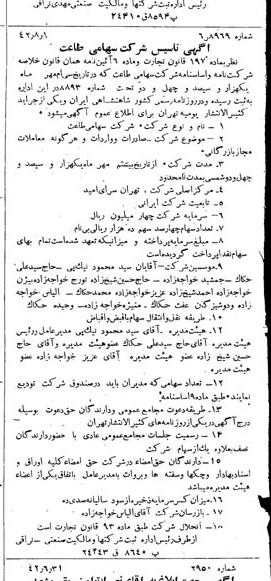 رئیس اداره ثبت شرکتها و مالکیت صنعتی مهدی نراقی
پ ۸۵۹۴ ق ۲۴۴۱۰
شماره ۸۹۶۹ر۶ ۱ر۸ر۴۲
آگهی تاسیس شرکت سهامی طاعت
نظر بماده ۱۹۷ قانون تجارت و ماده ۶ آئین نامه همان قانون خلاصه
شرکتنامه و اساسنامه شرکت سهامی طاعت که در تاریخ سی ام مهر ماه
یکهزار و سیصد و چهل و دو تحت شماره ۸۸۹۳ در این اداره
به ثبت رسیده و در روزنامه رسمی کشور شاهنشاهی ایران و یکی از جراید
کثیرالانتشار یومیه تهران برای اطلاع عموم آگهی میشود
۱ – نام و نوع شرکت – شرکت سهامی طاعت
۲ – موضوع شرکت – صادرات و واردات و هرگونه معاملات
مجاز بازرگانی
۳ – مدت شرکت – از تاریخ بیستم مهر ماه یکهزار و سیصد و
چهل و دو شمسی بمدت نامحدود
۴ – مرکز اصلی شرکت – تهران سرای امید
۵ – تابعیت شرکت ایرانی
۶ – سرمایه شرکت چهار میلیون ریال
۷ – تعداد سهام چهارصد سهم ده هزار ریالی بی نام
۸ – مبلغ سرمایه پرداخته و میزانیکه تعهد شده است تمام بهای
سهام نقدا پرداخت گردیده است
۹ – موسسین شرکت – آقایان سید محمود نیک پی – حاج سیدعلی
حکاک – جمشید خواجه زاده – حاج حسین شیخ زاده تورج خواجه زاده بیژن
خواجه زاده احمد شیخ زاده عزیز خواجه زاده محمد حکاک – الیاس خواجه
زاده و دوشیزگان عفت حکاک – منیژه خواجه زاده – وحیده حکاک
۱۰ – طریقه نقل و انتقال سهام با قبض و اقباض
۱۱ – هیئت مدیره – آقای سید محمود نیک پی مدیرعامل و رئیس
هیئت مدیره آقای حاج سیدعلی حکاک عضو هیئت مدیره و آقای حاج
حسین شیخ زاده عضو هیئت مدیره آقای عزیز خواجه زاده عضو
هیئت مدیره
۱۲ – تعداد سهامی که مدیران باید در صندوق شرکت تودیع
نمایند – طبق ماده ۱۹ اساسنامه
۱۳ – طریقه دعوت مجامع عمومی و دارندگان حق دعوت بوسیله
درج آگهی در یکی از روزنامه های کثیرالانتشار تهران
۱۴ – رسمیت جلسات مجامع عمومی عادی با حضور دارندگان
نصف بعلاوه یک از سهام شرکت
۱۵ – دارندگان حق امضاء در شرکت حق امضاء کلیه اوراق و
اسناد بهادار و چکها و سفته ها و بروات با مدیرعامل باتفاق یکی از اعضاء
هیئت مدیره میباشد
۱۶ – میزان کسر سرمایه ذخیره از سود سالیانه صدی ده
۱۷ – بازرسان شرکت آقای الیاس خواجه زاده
۱۰ – انحلال شرکت طبق ماده ۹۳ قانون تجارت است
از طرف رئیس اداره ثبت شرکتها و مالکیت صنعتی – نراقی
پ ۸۶۴۰ ق ۲۴۴۴۳
شماره ۲۹۵۰ ۳۱ر۶ر۴۲